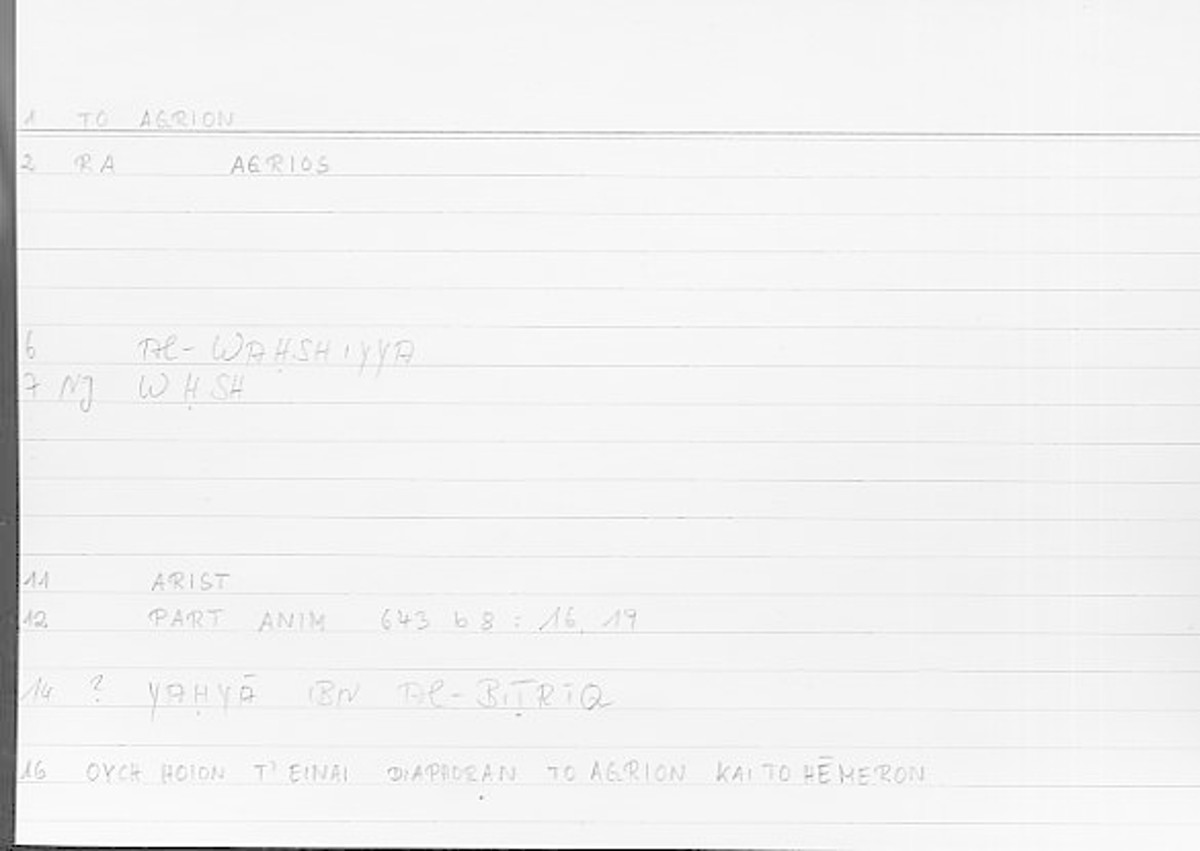 1 TO AGRION
2 RA AGRIOS
6 Al-WAḤSHIYYA
7 NJ WḤSH
11 ARIST
12 PART ANIM 643 b 8 : 16, 19
14 ? YAḤYĀ IBN Al-BIṬRĪQ
16 OYCH HOION T' EINAI DIAPHORAN TO AGRION KAI TO HĒMERON